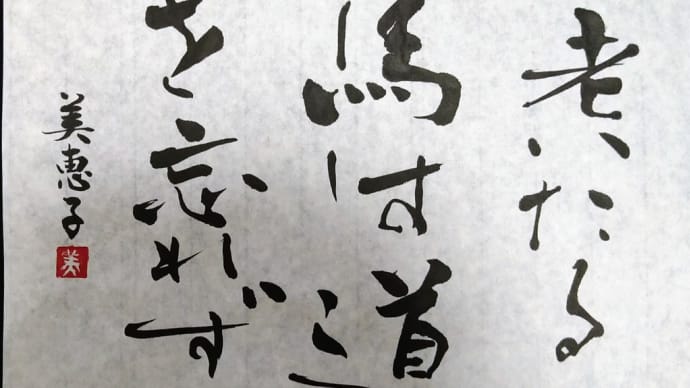 老いたる
馬は道
を忘れず
美恵子
美